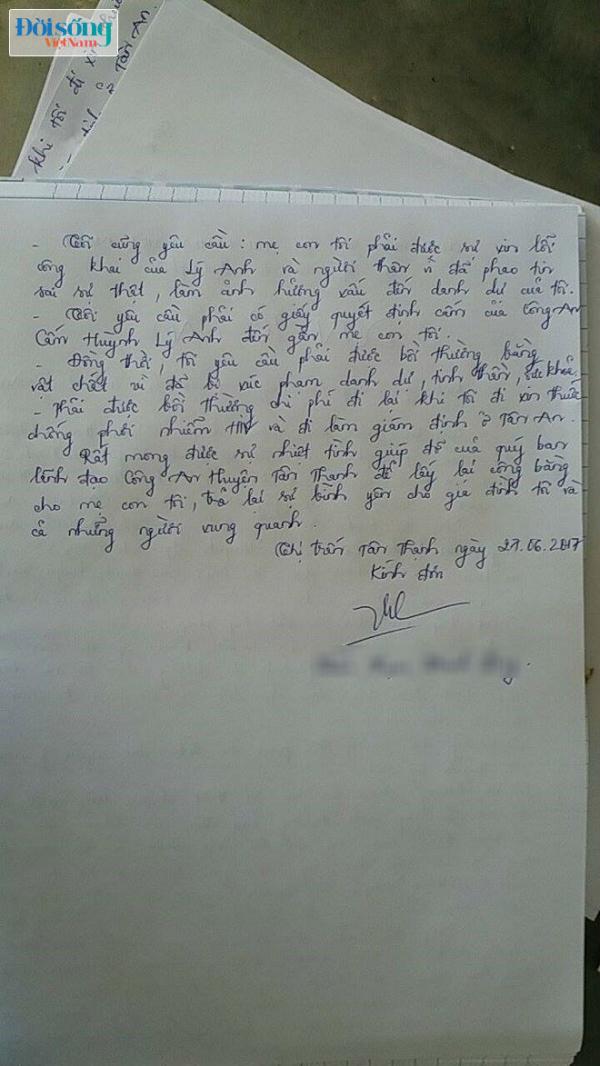 Đờisống
ViệtNam
khi tôi đi xi
ở Tân An.
- Tôi cũng yêu cầu: mẹ con tôi phải được sự xin lỗi
công khai của Lý Anh và người thân vì đã phao tin
sai sự thật, làm ảnh hưởng xấu đến danh dự của tôi.
- Tôi yêu cầu phải có giấy quyết định cấm của Công An
Cấm Huỳnh Lý Anh đến gần mẹ con tôi.
- Đồng thời, tôi yêu cầu phải được bồi thường bằng
vật chất vì đã bị xúc phạm danh dự, tinh thần, sức khỏe.
- Phải được bồi thường chi phí đi lại khi tôi đi xin thuốc
chống phơi nhiễm HIV và đi làm giám định ở Tân An.
Rất mong được sự nhiệt tình giúp đỡ của quý ban
lãnh đạo Công An Huyện Tân Thạnh để lấy lại công bằng
cho mẹ con tôi, trả lại sự bình yên cho gia đình tôi và
cả những người xung quanh.
Thị trấn Tân Thạnh ngày 27.06.2017
Kính đơn